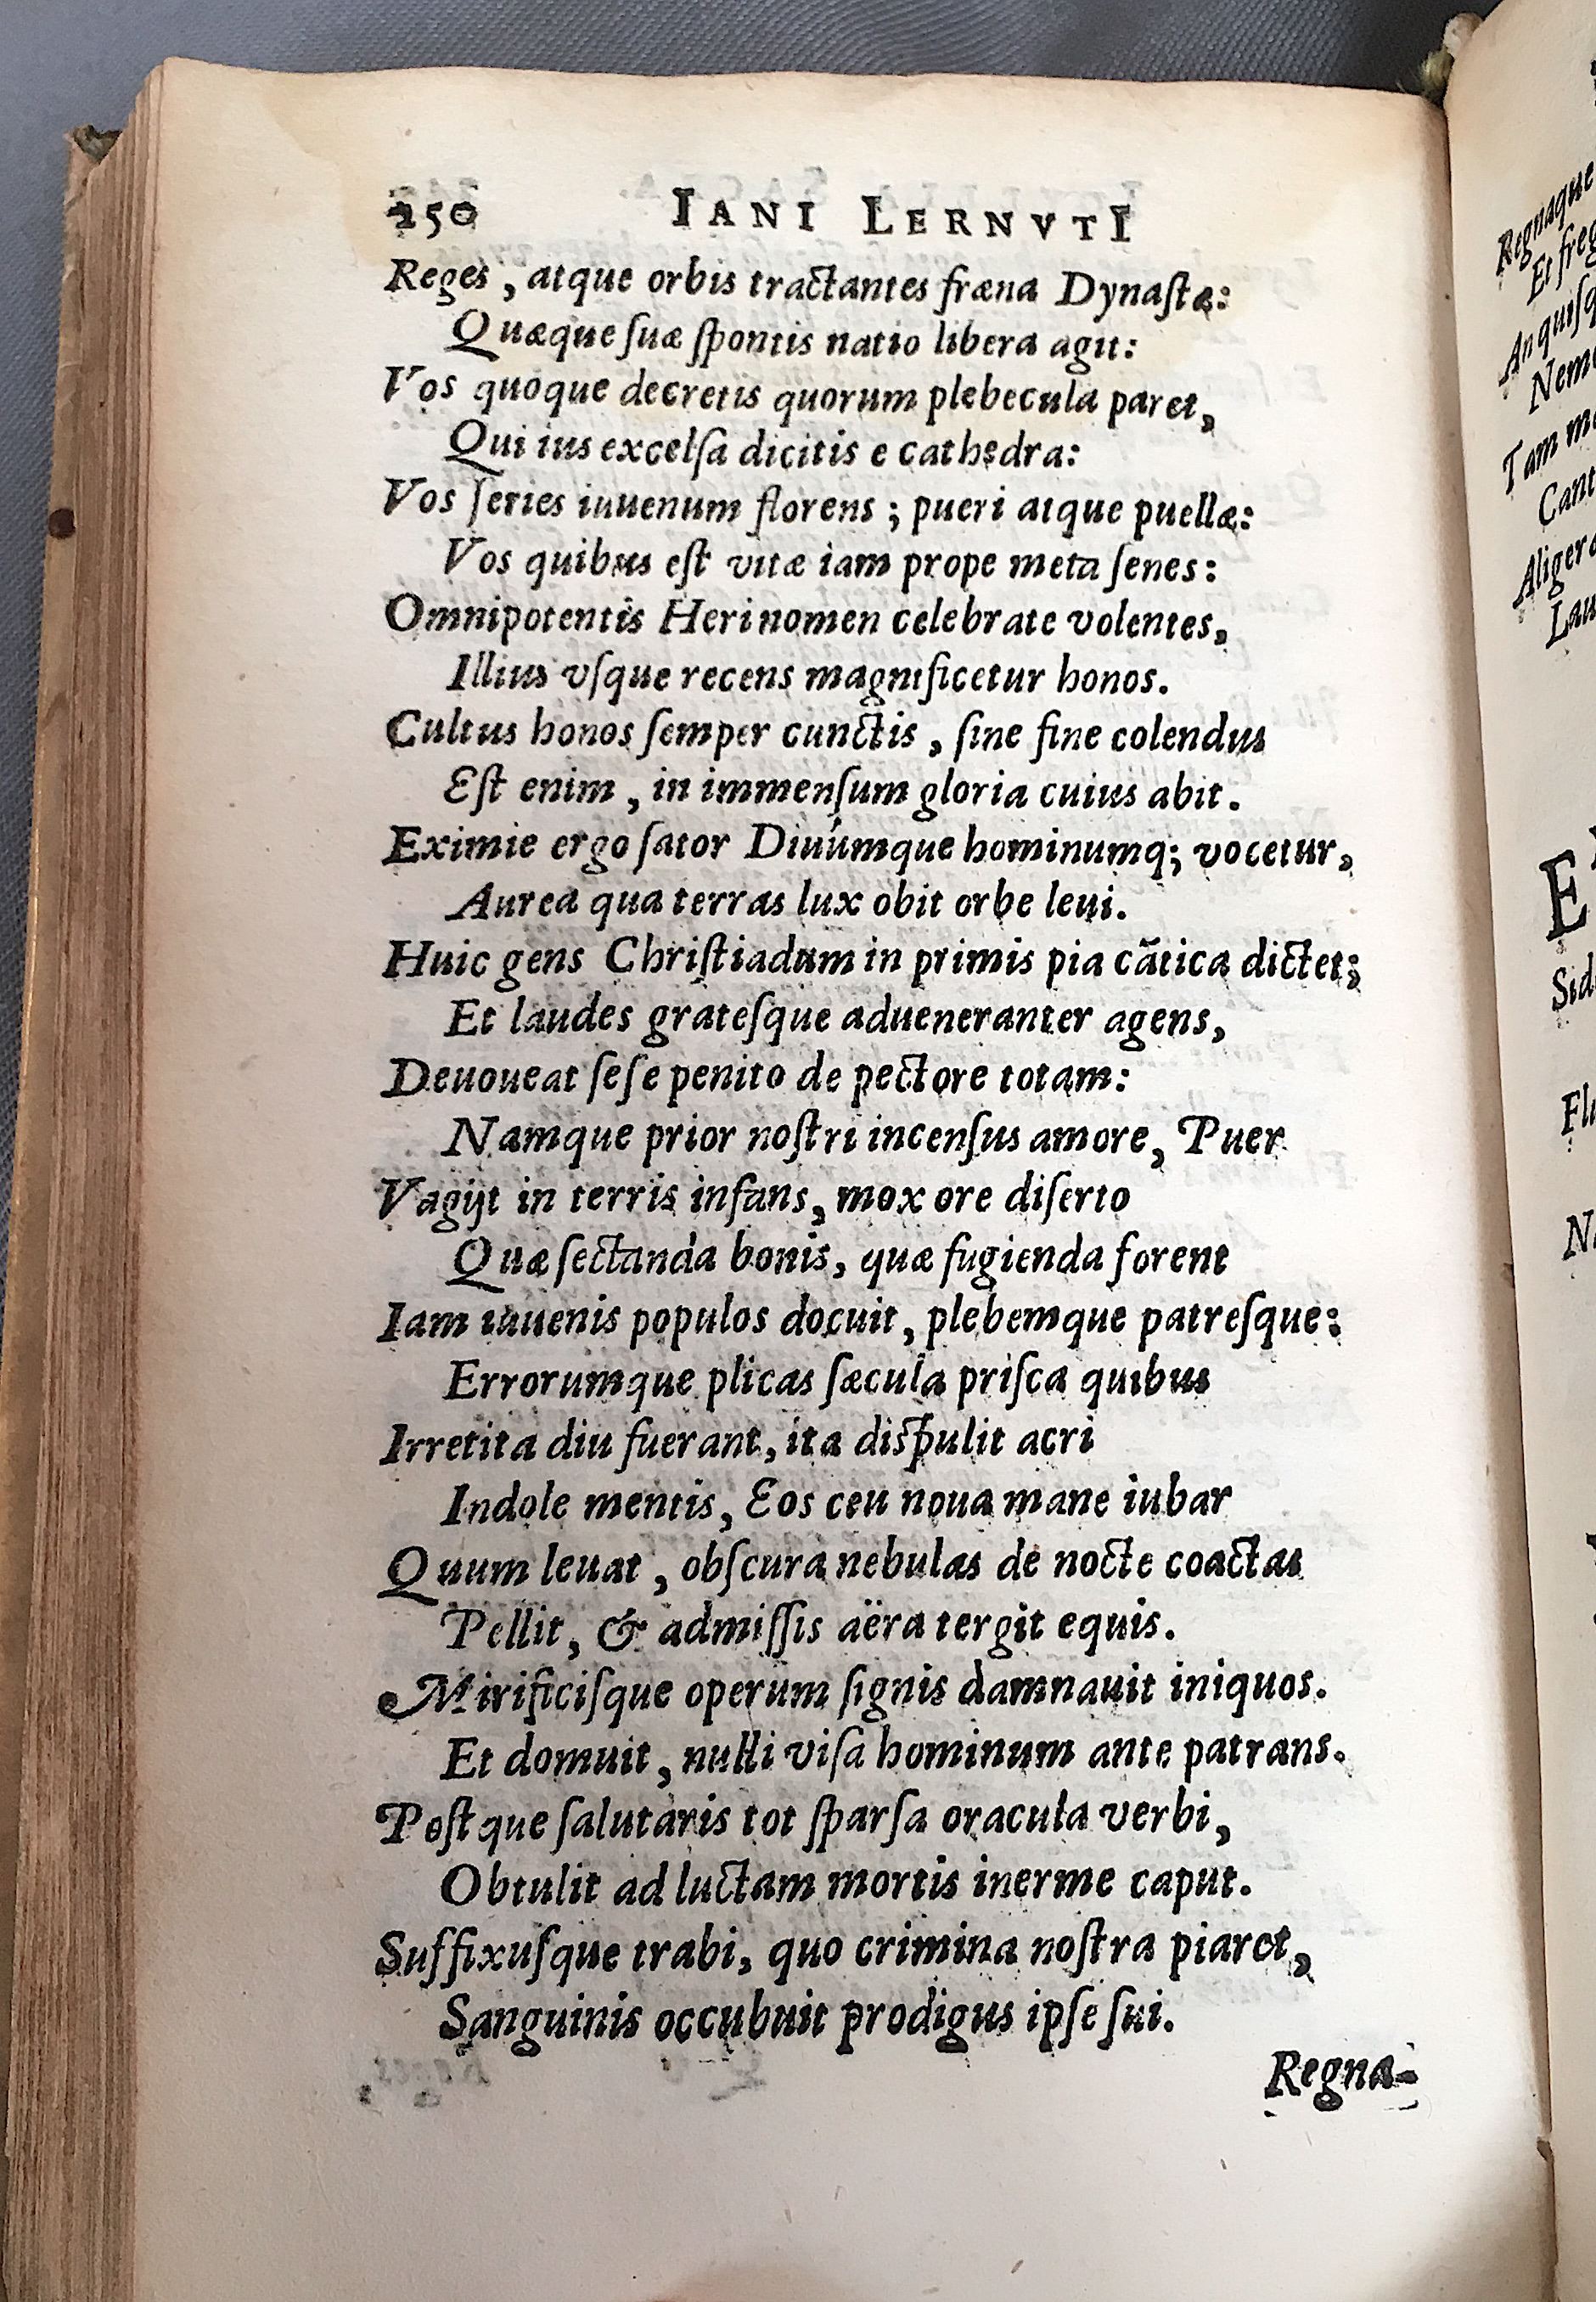 250 IANI LERNVTI
Reges, atque orbis tractantes fræna Dynaſtæ:
Quæque ſuæ ſpontis natio libera agit:
Vos quoque decretis quorum plebecula paret,
Qui ius excelſa dicitis e cathedra:
Vos ſeries iuuenum florens; pueri atque puellæ:
Vos quibus eſt vitæ iam prope meta ſenes:
Omnipotentis Heri nomen celebrate volentes,
Illius vſque recens magnificetur honos.
Cultus honos ſemper cunctis, ſine fine colendus
Eſt enim, in immenſum gloria cuius abit.
Eximie ergo ſator Diuúmque hominumq; vocetur,
Aurea qua terras lux obit orbe leui.
Huic gens Chriſtiadum in primis pia cãtica dictet;
Et laudes grateſque adueneranter agens,
Deuoueat ſeſe penito de pectore totam:
Namque prior noſtri incenſus amore, Puer
Vagijt in terris infans, mox ore diſerto
Quæ ſectanda bonis, quæ fugienda forent
Iam iuuenis populos docuit, plebemque patreſque:
Errorumque plicas ſæcula priſca quibus
Irretita diu fuerant, ita diſpulit acri
Indole mentis, Eos ceu noua mane iubar
Quum leuat, obſcura nebulas de nocte coactas
Pellit, & admiſſis aëra tergit equis.
Mirificiſque operum ſignis damnauit iniquos.
Et domuit, nulli viſa hominum ante patrans.
Poſtque ſalutaris tot ſparſa oracula verbi,
Obtulit ad luctam mortis inerme caput.
Suffixuſque trabi, quo crimina noſtra piaret,
Sanguinis occubuit prodigus ipſe ſui.
Regna-
Regnaque
Nemo
Tam